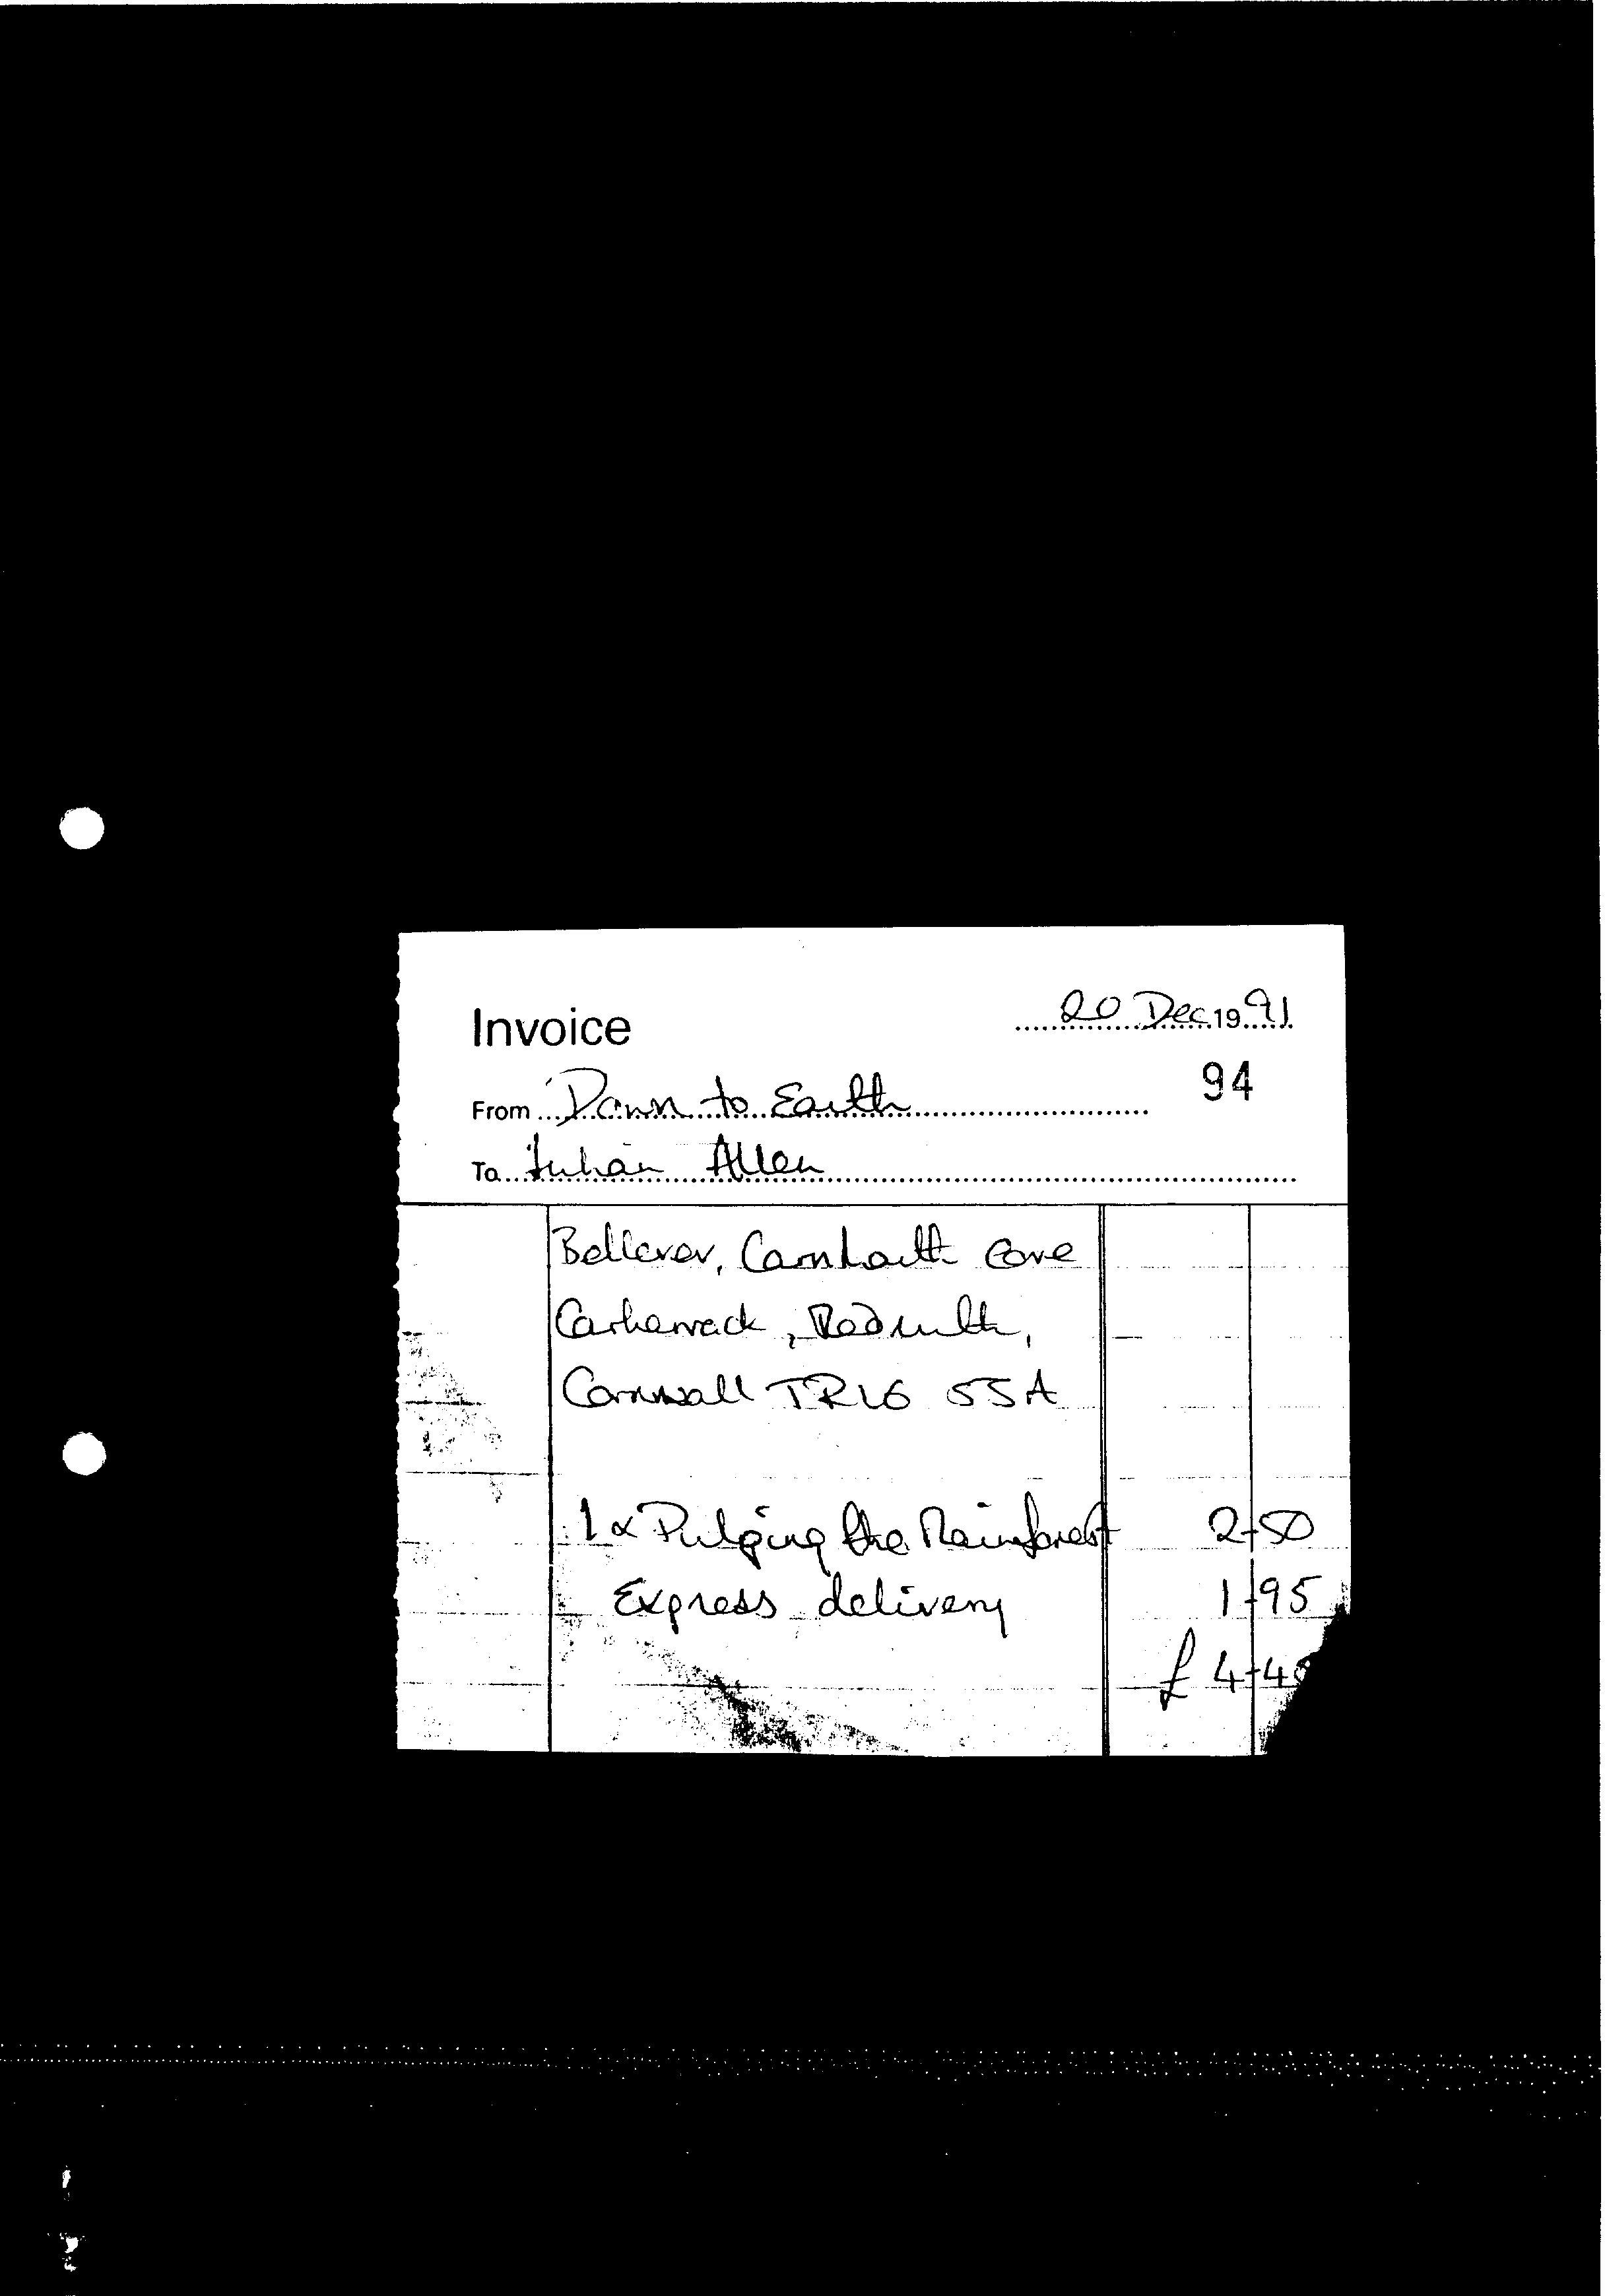 Invoice
20 Dec 1991
94
From Down to Earth
To Julian Allen
Bellever, Carnhath Cove
Carharrack, Redruth,
Cornwall TR16 5SA
1 x Pulping the Rainforest 2-50
Express delivery 1-95
£ 4-4